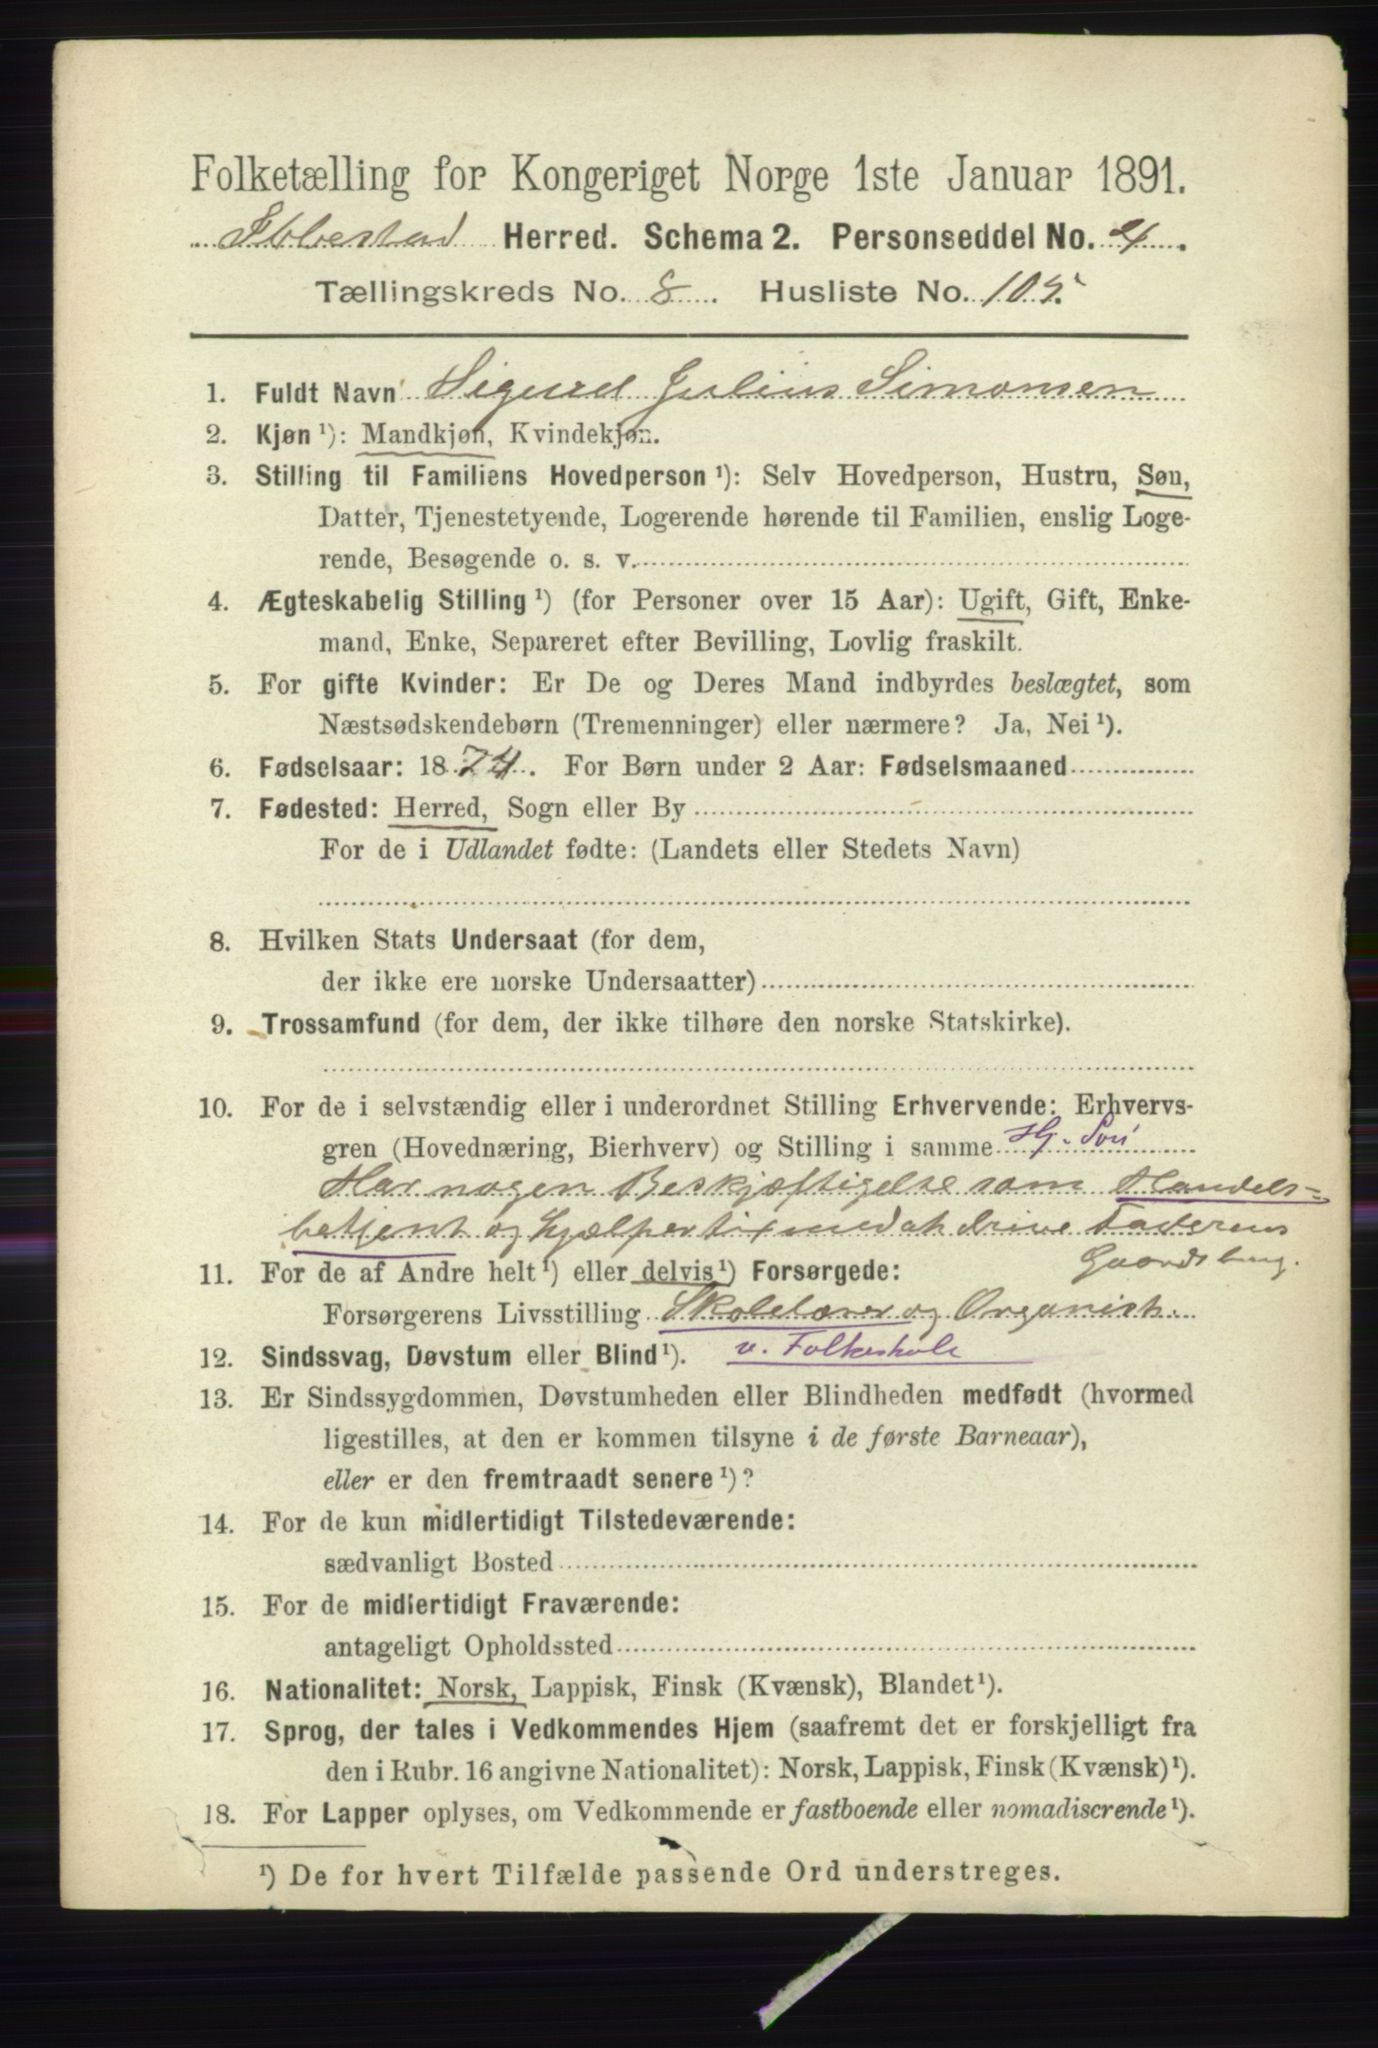 Folketælling for Kongeriget Norge 1ste Januar 1891.
Ibbestad Herred. Schema 2. Personseddel No. 4.
Tællingskreds No. 8. Husliste No. 105.
1. Fuldt Navn Sigurd Julius Simonsen
2. Kjøn ¹): Mandkjøn, Kvindekjøn.
3. Stilling til Familiens Hovedperson ¹): Selv Hovedperson, Hustru, Søn,
Datter, Tjenestetyende, Logerende hørende til Familien, enslig Loge-
rende, Besøgende o. s. v.
4. Ægteskabelig Stilling ¹) (for Personer over 15 Aar): Ugift, Gift, Enke-
mand, Enke, Separeret efter Bevilling, Lovlig fraskilt.
5. For gifte Kvinder: Er De og Deres Mand indbyrdes beslægtet, som
Næstsødskendebørn (Tremenninger) eller nærmere? Ja, Nei ¹).
6. Fødselsaar: 1874. For Børn under 2 Aar: Fødselsmaaned
7. Fødested: Herred, Sogn eller By
For de i Udlandet fødte: (Landets eller Stedets Navn)
8. Hvilken Stats Undersaat (for dem,
der ikke ere norske Undersaatter)
9. Trossamfund (for dem, der ikke tilhøre den norske Statskirke).
10. For de i selvstændig eller i underordnet Stilling Erhvervende: Erhvervs-
gren (Hovednæring, Bierhverv) og Stilling i samme
Har nogen Beskjæftigelse som Handels-
betjent og hjælper til med at drive Faderens
Gaardsbrug.
11. For de af Andre helt ¹) eller delvis ¹) Forsørgede:
Forsørgerens Livsstilling Skolelærer og Organist.
v. Folkeskole
12. Sindssvag, Døvstum eller Blind ¹).
13. Er Sindssygdommen, Døvstumheden eller Blindheden medfødt (hvormed
ligestilles, at den er kommen tilsyne i de første Barneaar),
eller er den fremtraadt senere ¹)?
14. For de kun midlertidigt Tilstedeværende:
sædvanligt Bosted
15. For de midlertidigt Fraværende:
antageligt Opholdssted
16. Nationalitet: Norsk, Lappisk, Finsk (Kvænsk), Blandet ¹).
17. Sprog, der tales i Vedkommendes Hjem (saafremt det er forskjelligt fra
den i Rubr. 16 angivne Nationalitet): Norsk, Lappisk, Finsk (Kvænsk) ¹).
18. For Lapper oplyses, om Vedkommende er fastboende eller nomadiserende ¹).
¹) De for hvert Tilfælde passende Ord understreges.